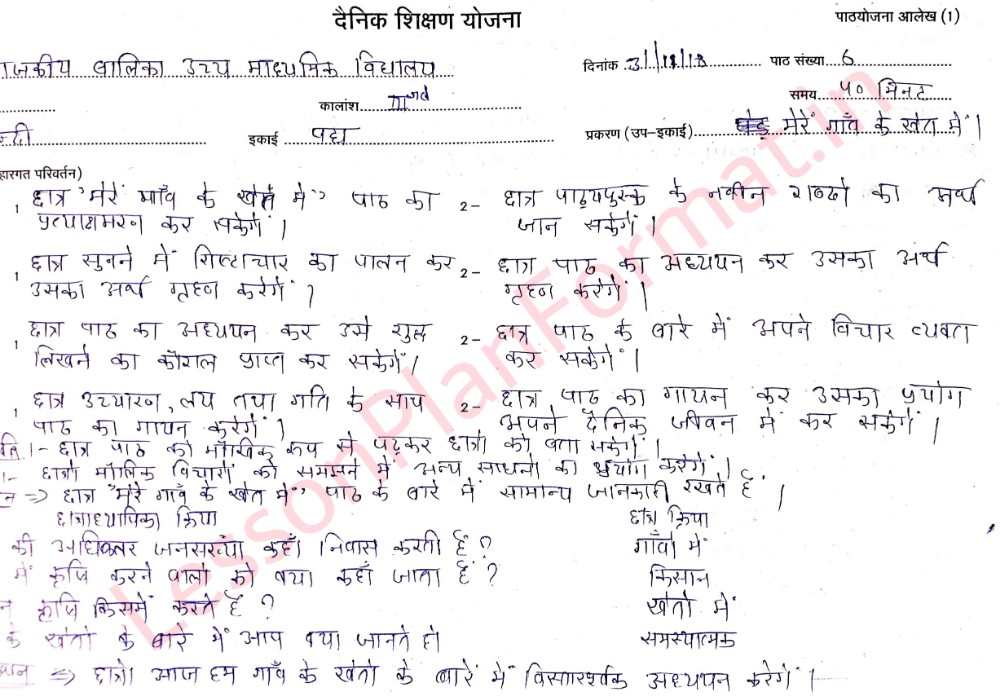 दैनिक शिक्षण योजना
पाठयोजना आलेख (1)
राजकीय बालिका उच्च माध्यमिक विद्यालय
दिनांक पाठ संख्या 6
समय 40 मिनट
कालांश
इकाई पद्य प्रकरण (उप-इकाई) मेरें गाँव के खेत में।
हारगत परिवर्तन)
1 छात्र "मेरें गाँव के खेत में" पाठ का 2- छात्र पाठ्यपुस्तक के नवीन शब्दो का अर्थ
प्रत्यास्मरन कर सकेगें। जान सकेगें।
1 छात्र सुनने में शिष्टाचार का पालन कर 2- छात्र पाठ का अध्ययन कर उसका अर्थ
उसका अर्थ गृहण करेगें। गृहण करेगें।
1 छात्र पाठ का अध्ययन कर उसे शुद्ध 2- छात्र पाठ के बारे में अपने विचार व्यक्त
लिखने का कौशल प्राप्त कर सकेगें। कर सकेगें।
1 छात्र उच्चारण, लय तथा गति के साथ 2- छात्र पाठ का गायन कर उसका प्रयोग
पाठ का गायन करेगें। अपने दैनिक जीवन में कर सकेगें।
1- छात्र पाठ को मौखिक रूप से पढ़कर छात्रो को बता सकेगें।
1- छात्रो मौलिक विचारों को समझने में अन्य साधनो का प्रयोग करेगें।
न => छात्र "मेरे गाँव के खेत में" पाठ के बारे में सामान्य जानकारी रखते हैं।
छात्राध्यापिका क्रिया छात्र क्रिया
की अधिकतर जनसंख्या कहाँ निवास करती हैं? गाँवो में
में कृषि करने वालो को क्या कहाँ जाता हैं? किसान
न कृषि किसमें करते हैं? खेतो में
के खेतो के बारे में आप क्या जानते हो समस्यात्मक
=> छात्रो आज हम गाँव के खेतो के बारें में विस्तारपूर्वक अध्ययन करेगें।
LessonPlanFormat.in